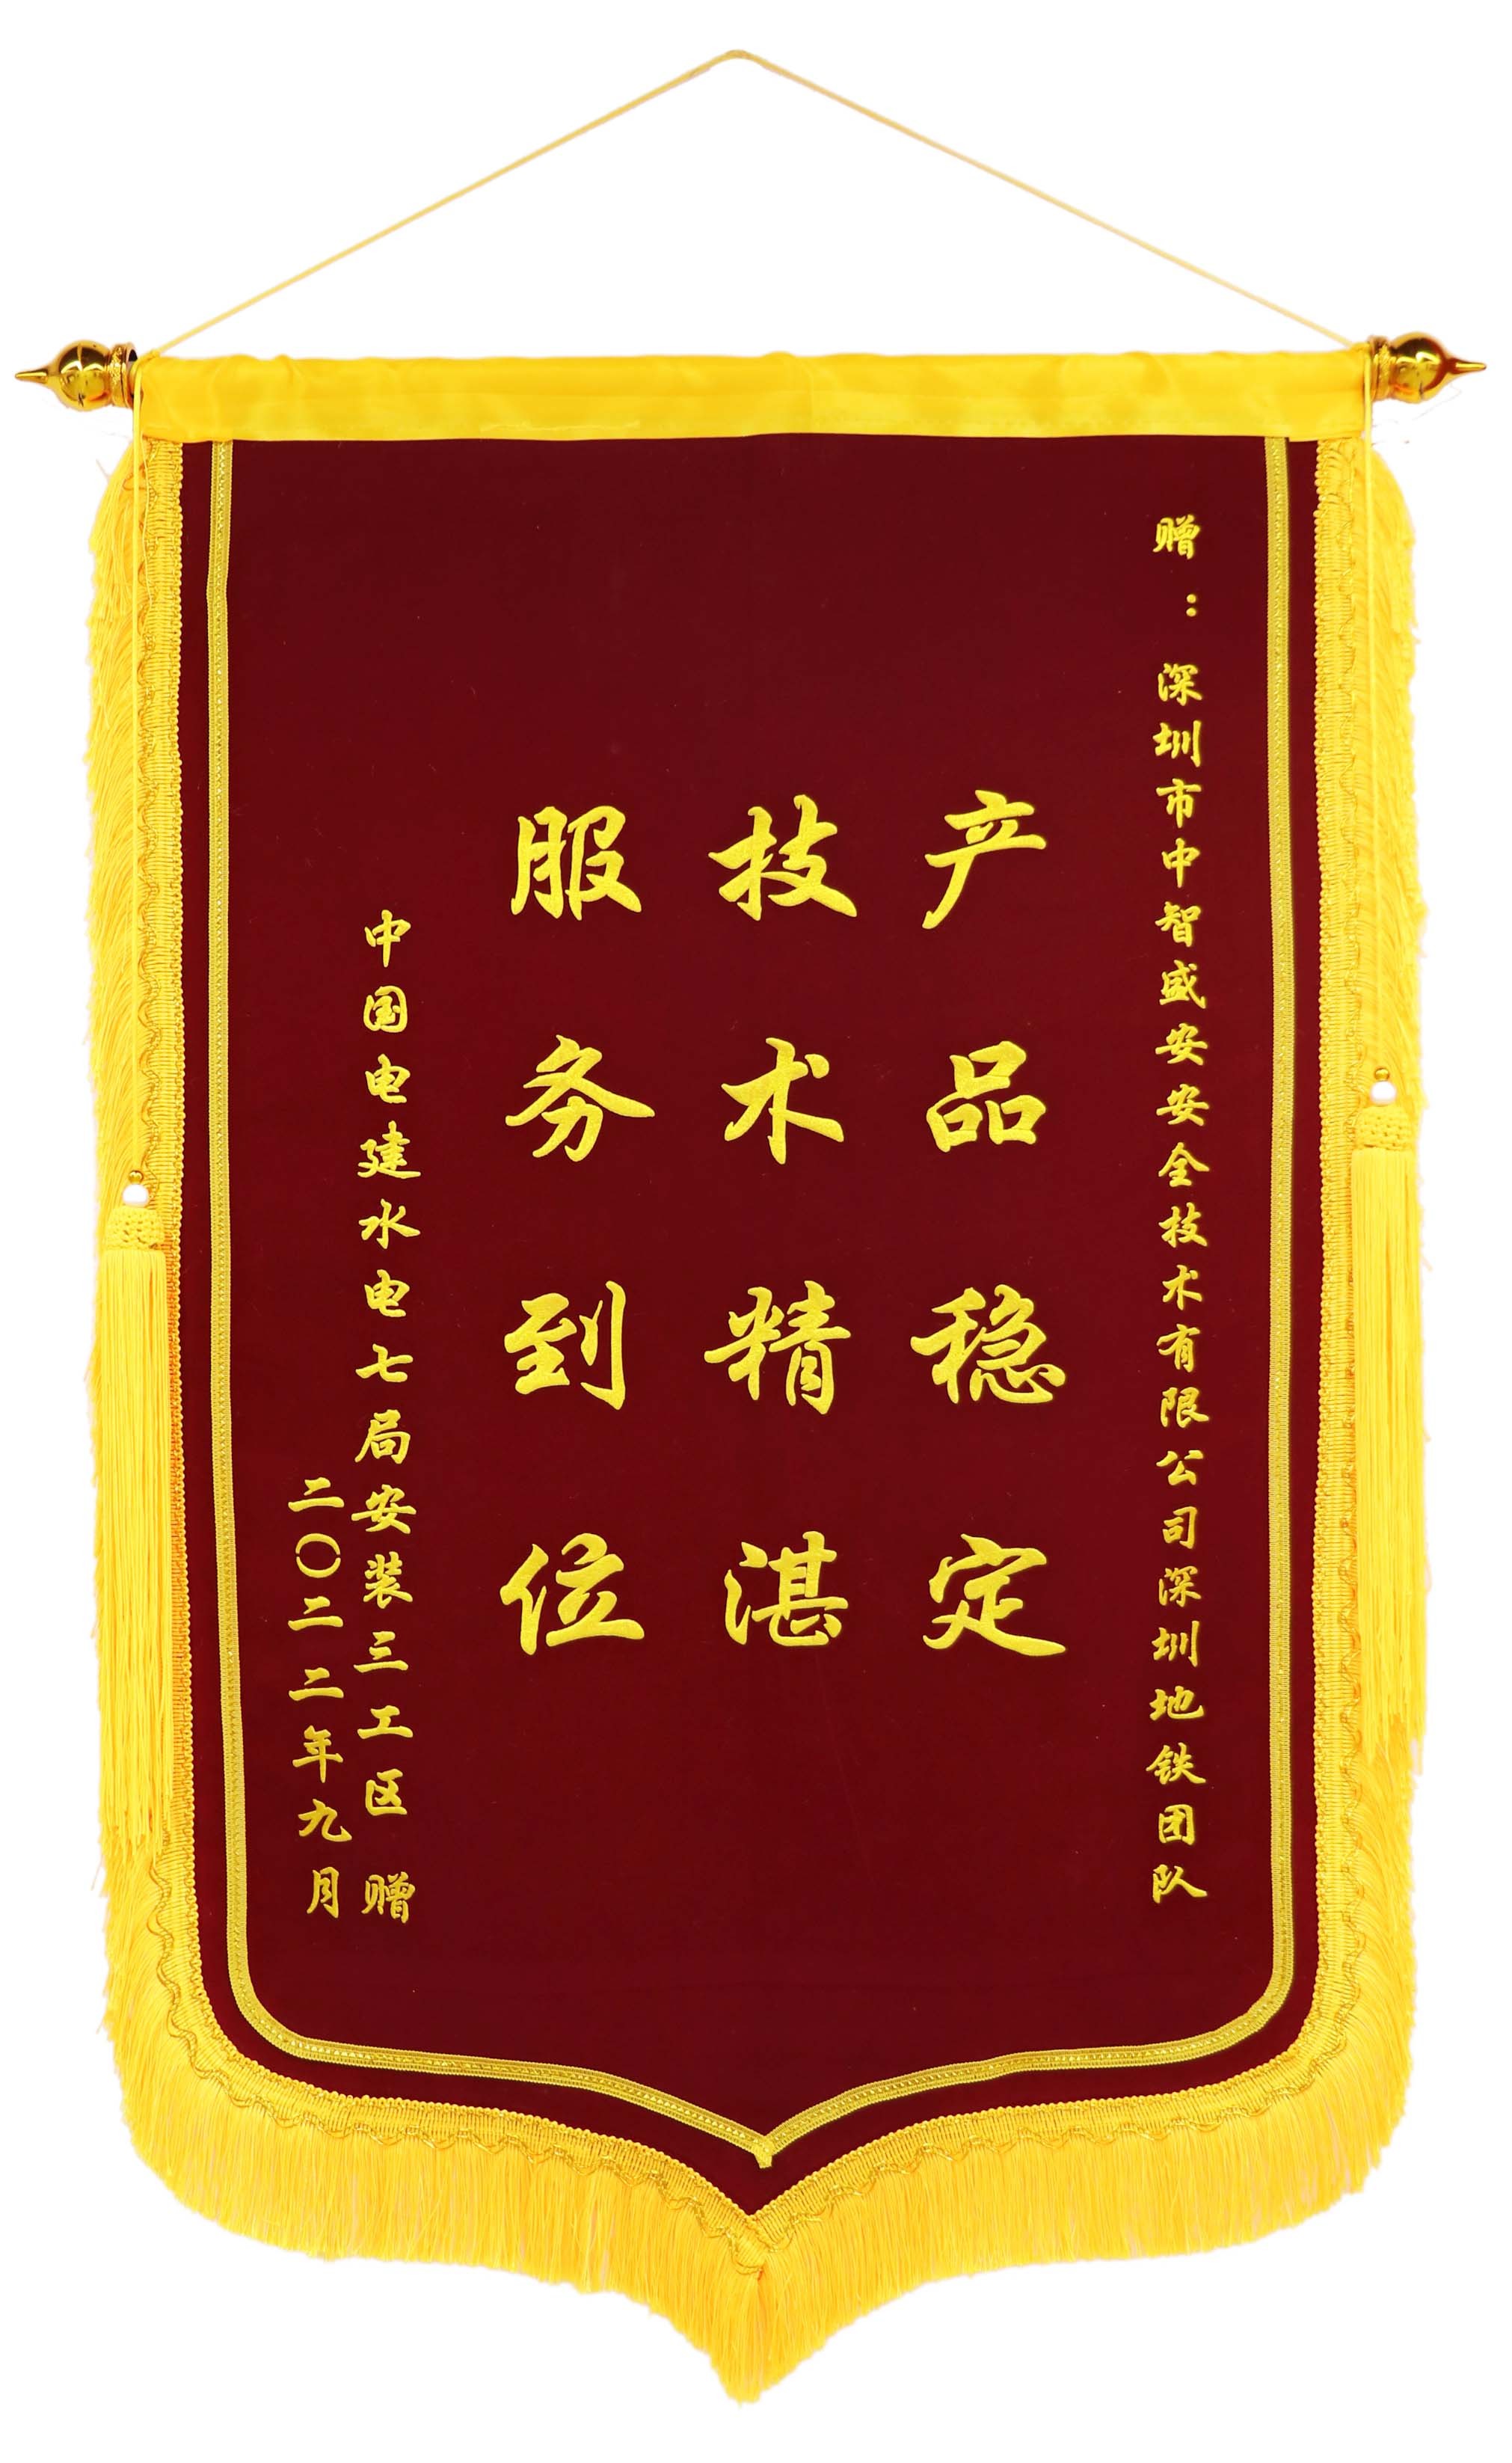 赠：深圳市中智盛安安全技术有限公司深圳地铁团队
产品稳定
技术精湛
服务到位
中国电建水电七局安装三工区 赠
二〇二二年九月